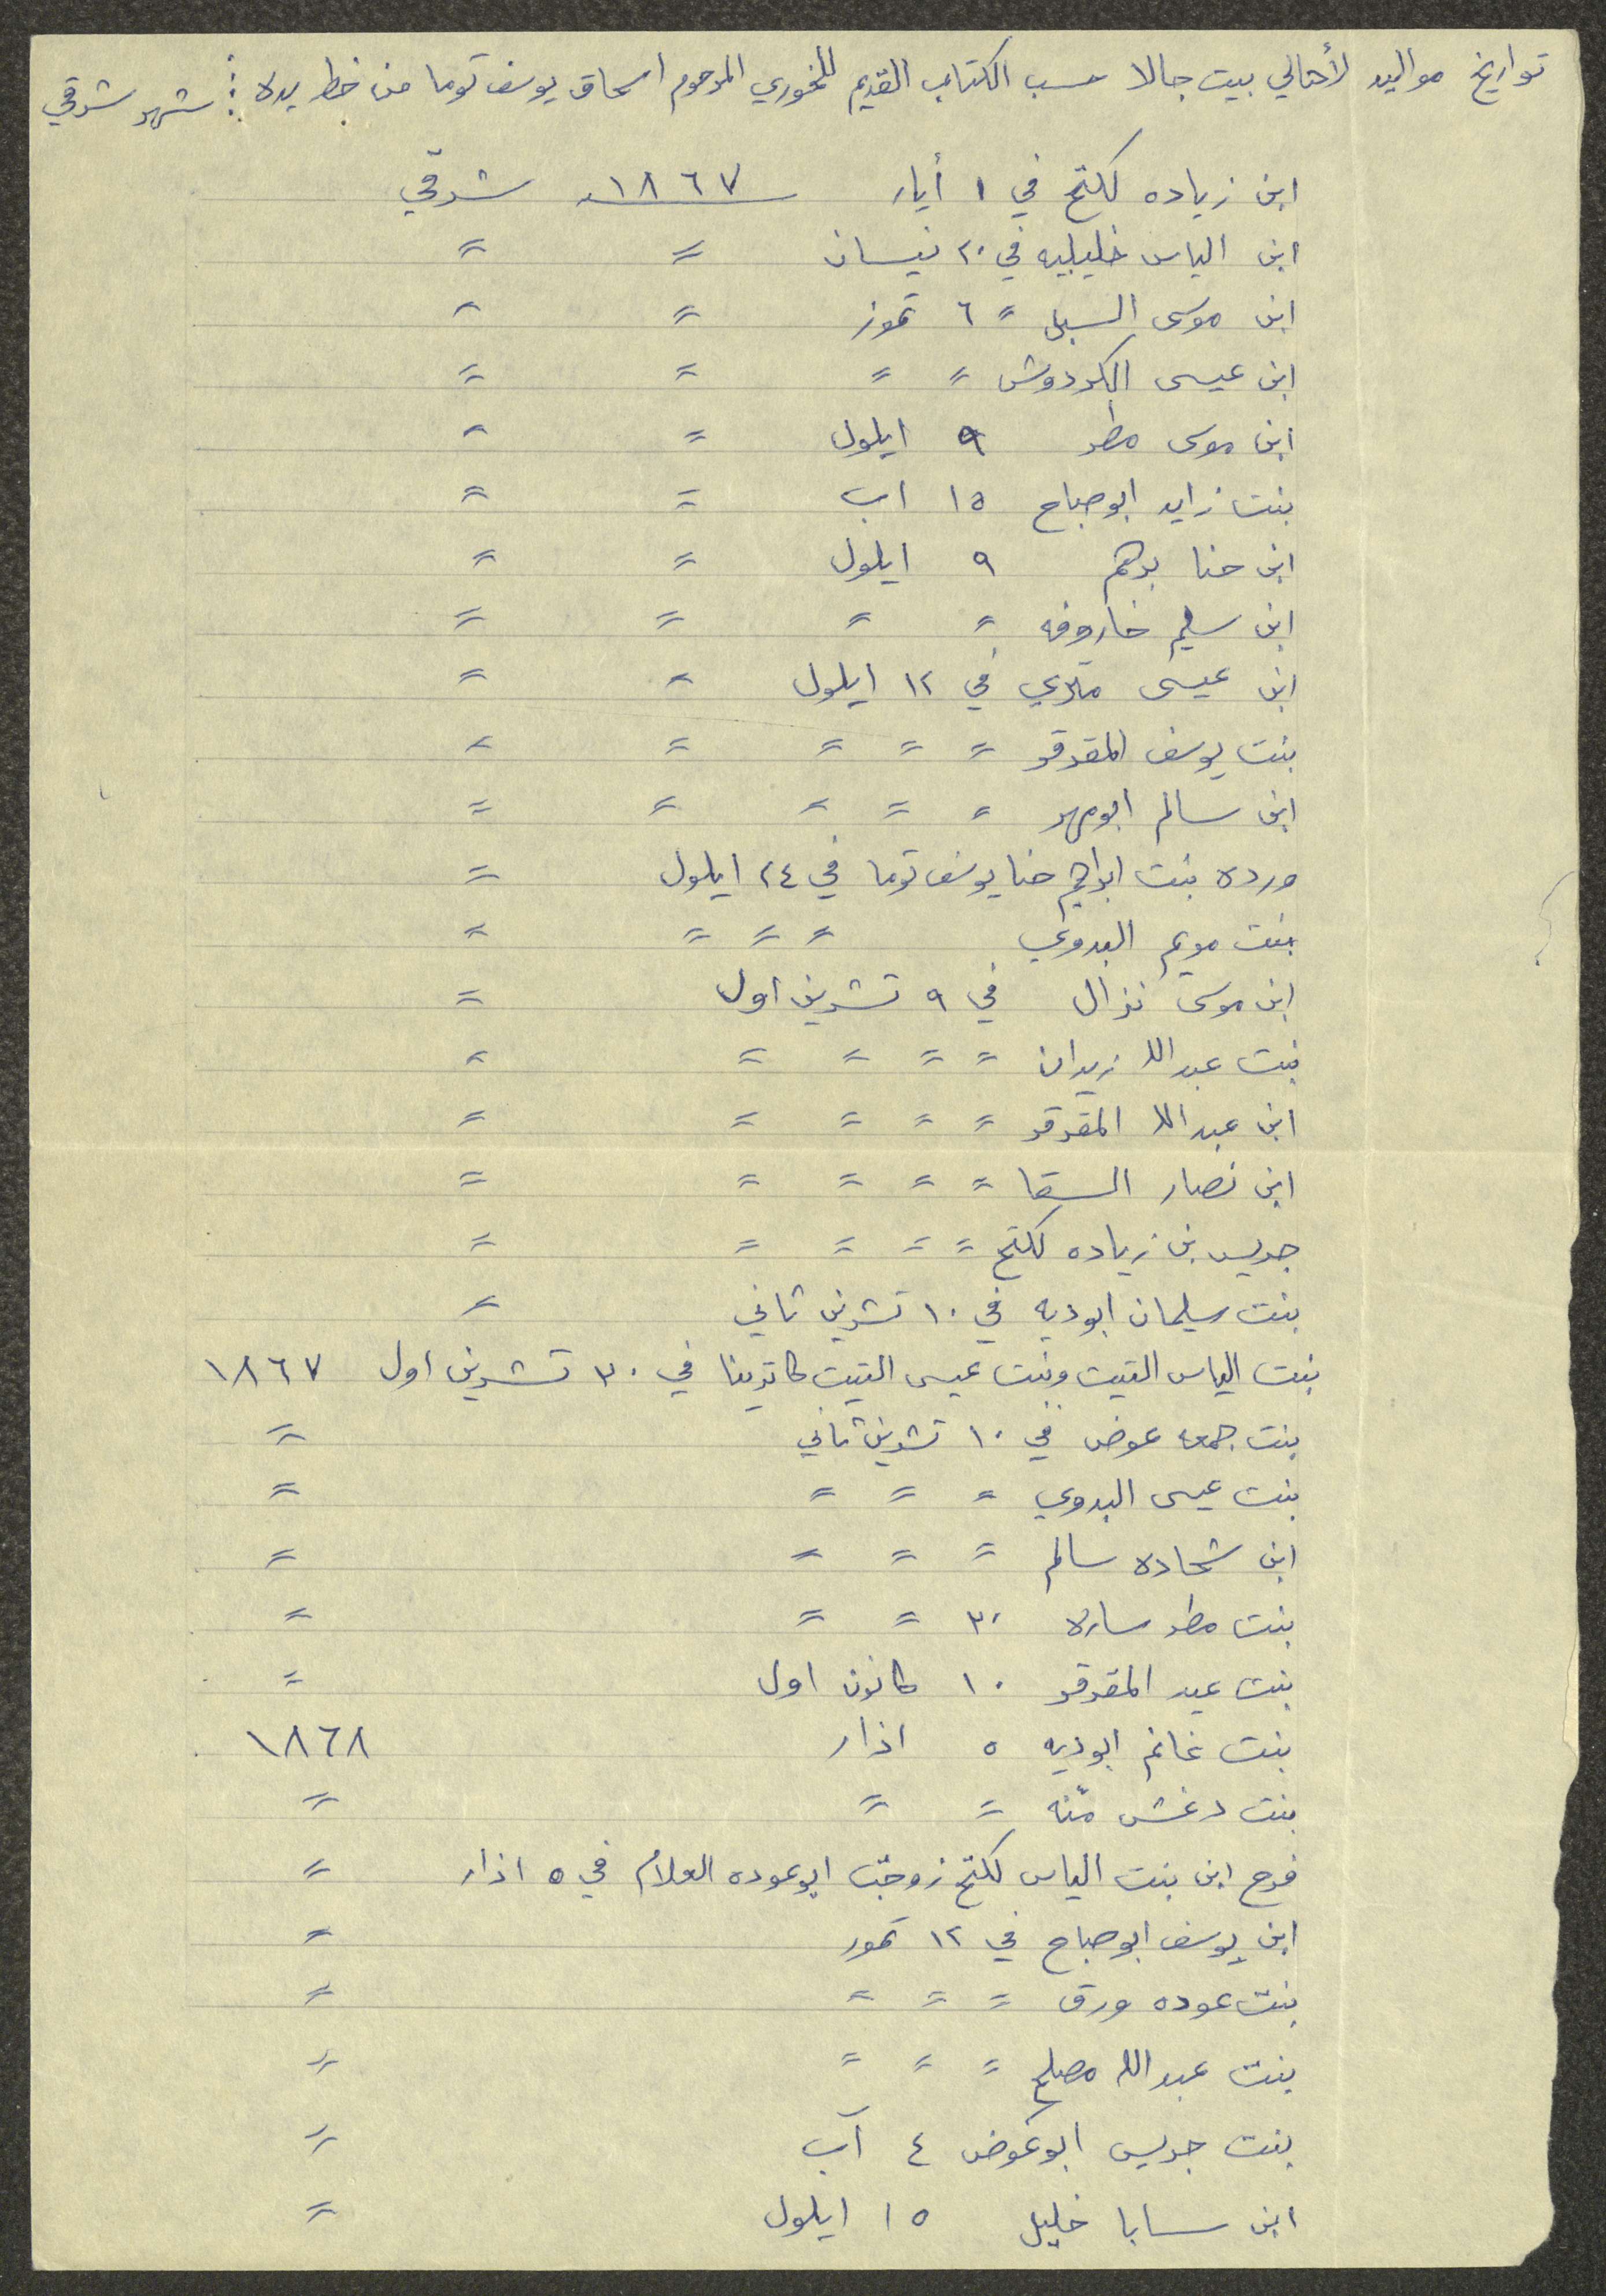 تواريخ مواليد لأهالي بيت جالا حسب الكتاب القديم للخوري المرحوم اسحاق يوسف توما من خط يده : شهر شرقي
ابن زياده لكتح في ١ أيار ١٨٦٧ شرقي
ابن الياس خليليه في ٢٠ نيسان = =
ابن موسى السبل = ٦ تموز = =
ابن عيسى الكردوش = = = =
ابن موسى مطر ٩ ايلول = =
بنت زايد ابو صباح ١٥ اب = =
ابن حنا برهم ٩ ايلول = =
ابن سليم خاروفه = = = =
ابن عيسى متري في ١٢ ايلول = =
بنت يوسف المقرقر = = = = =
ابن سالم ابو مهر = = = = =
ورده بنت ابراهيم حنا يوسف توما في ٢٤ ايلول =
بنت مريم البدوي = = = =
ابن موسى نزال في ٩ تشرين اول =
بنت عبدالله زيدان = = = = =
ابن عبدالله المقرقر = = = = =
ابن نصار السقا = = = = =
جريس بن زياده لكتح = = = = =
بنت سليمان ابو ديه في ١٠ تشرين ثاني =
بنت الياس التيت وبنت عيسى التيت كاترينا في ٣٠ تشرين اول ١٨٦٧
بنت جمعه عوض في ١٠ تشرين ثاني =
بنت عيسى البدوي = = = =
ابن شحاده سالم = = = =
بنت مطر ساره ٣٠ = = =
بنت عيد المقرقر ١٠ كانون اول =
بنت غانم ابو ديه ٥ اذار ١٨٦٨
بنت دغش منّه = = =
فرح ابن بنت الياس لكتح زوجة ابو عوده العلام في ٥ اذار =
ابن يوسف ابو صباح في ١٢ تموز =
بنت عوده ورق = = = =
بنت عبدالله مصلح = = = =
بنت جريس ابو عوض ٤ آب =
ابن سابا خليل ١٥ ايلول =